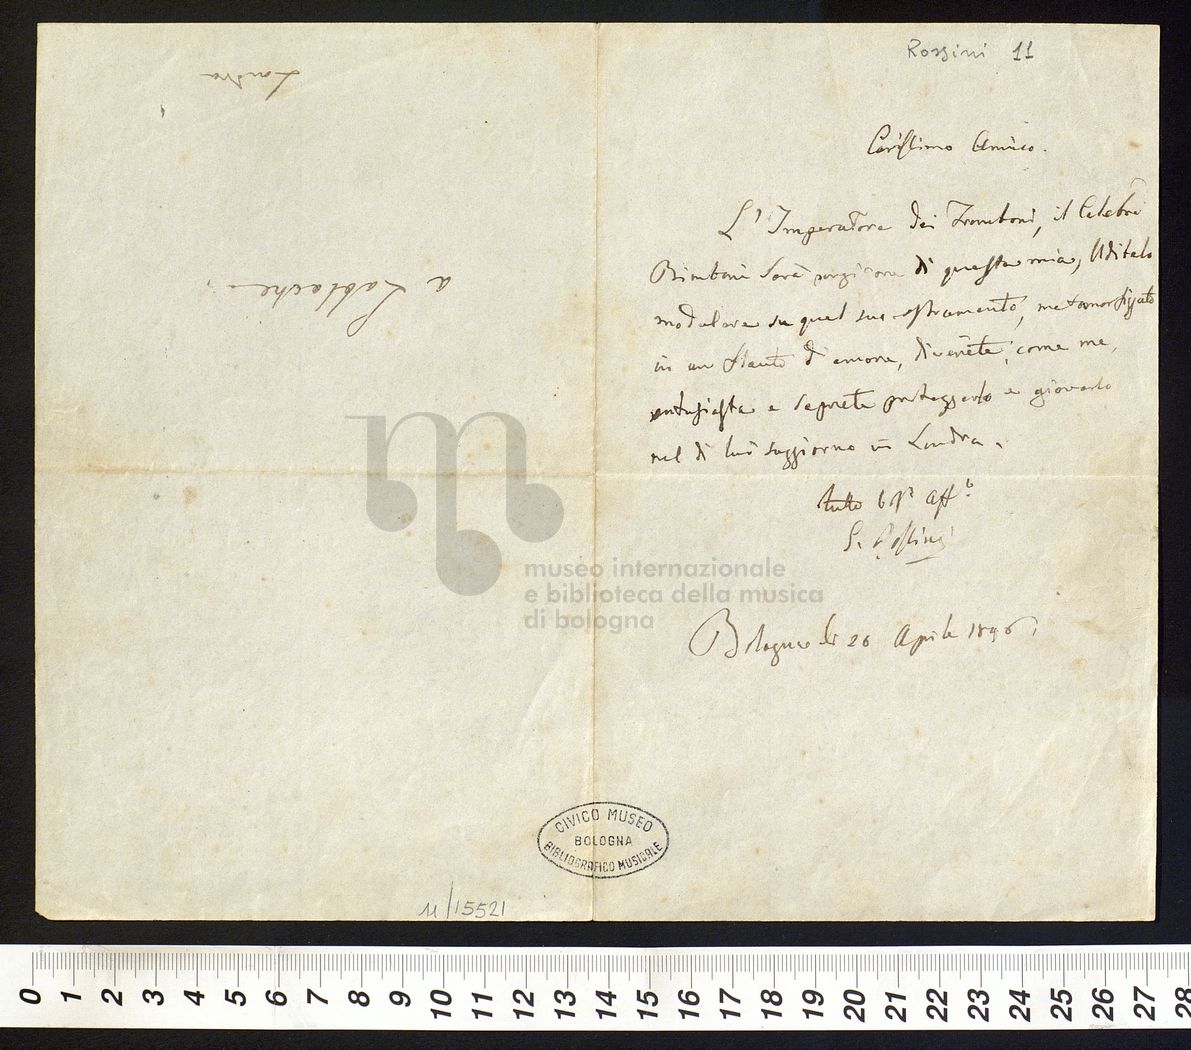 Rossini 11
Carissimo Amico.
L'Imperatore dei Tromboni, il Celebre
Bimboni Sarà di questa mia, Uditelo
modulare su quel suo istrumento, metamorfizzato
in un flauto d'amore, diverrete, come me,
entusiasta e saprete proteggerlo e giovarlo
nel di lui soggiorno in Londra.
tutto Vos° Aff°
G. Rossini
Bologna li 26 Aprile 1846.
Londra
a Lablache
museo internazionale
e biblioteca della musica
di bologna
CIVICO MUSEO
BOLOGNA
BIBLIOGRAFICO MUSICALE
11/15521
0 1 2 3 4 5 6 7 8 9 10 11 12 13 14 15 16 17 18 19 20 21 22 23 24 25 26 27 28